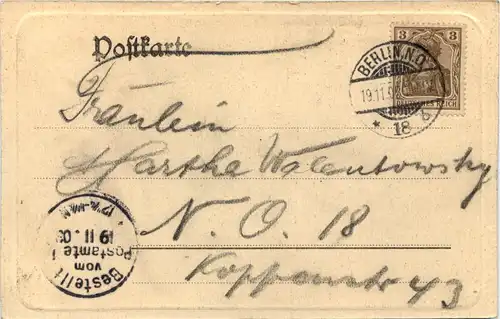 Postkarte
3 3
BERLIN, N.O.
19.11.
DEUTSCHES REICH
* 18 b
Fräulein
Martha Walentowsky
N. O. 18
Koppenstr 43
Bestellt
vom
Postamte
19 11. 03